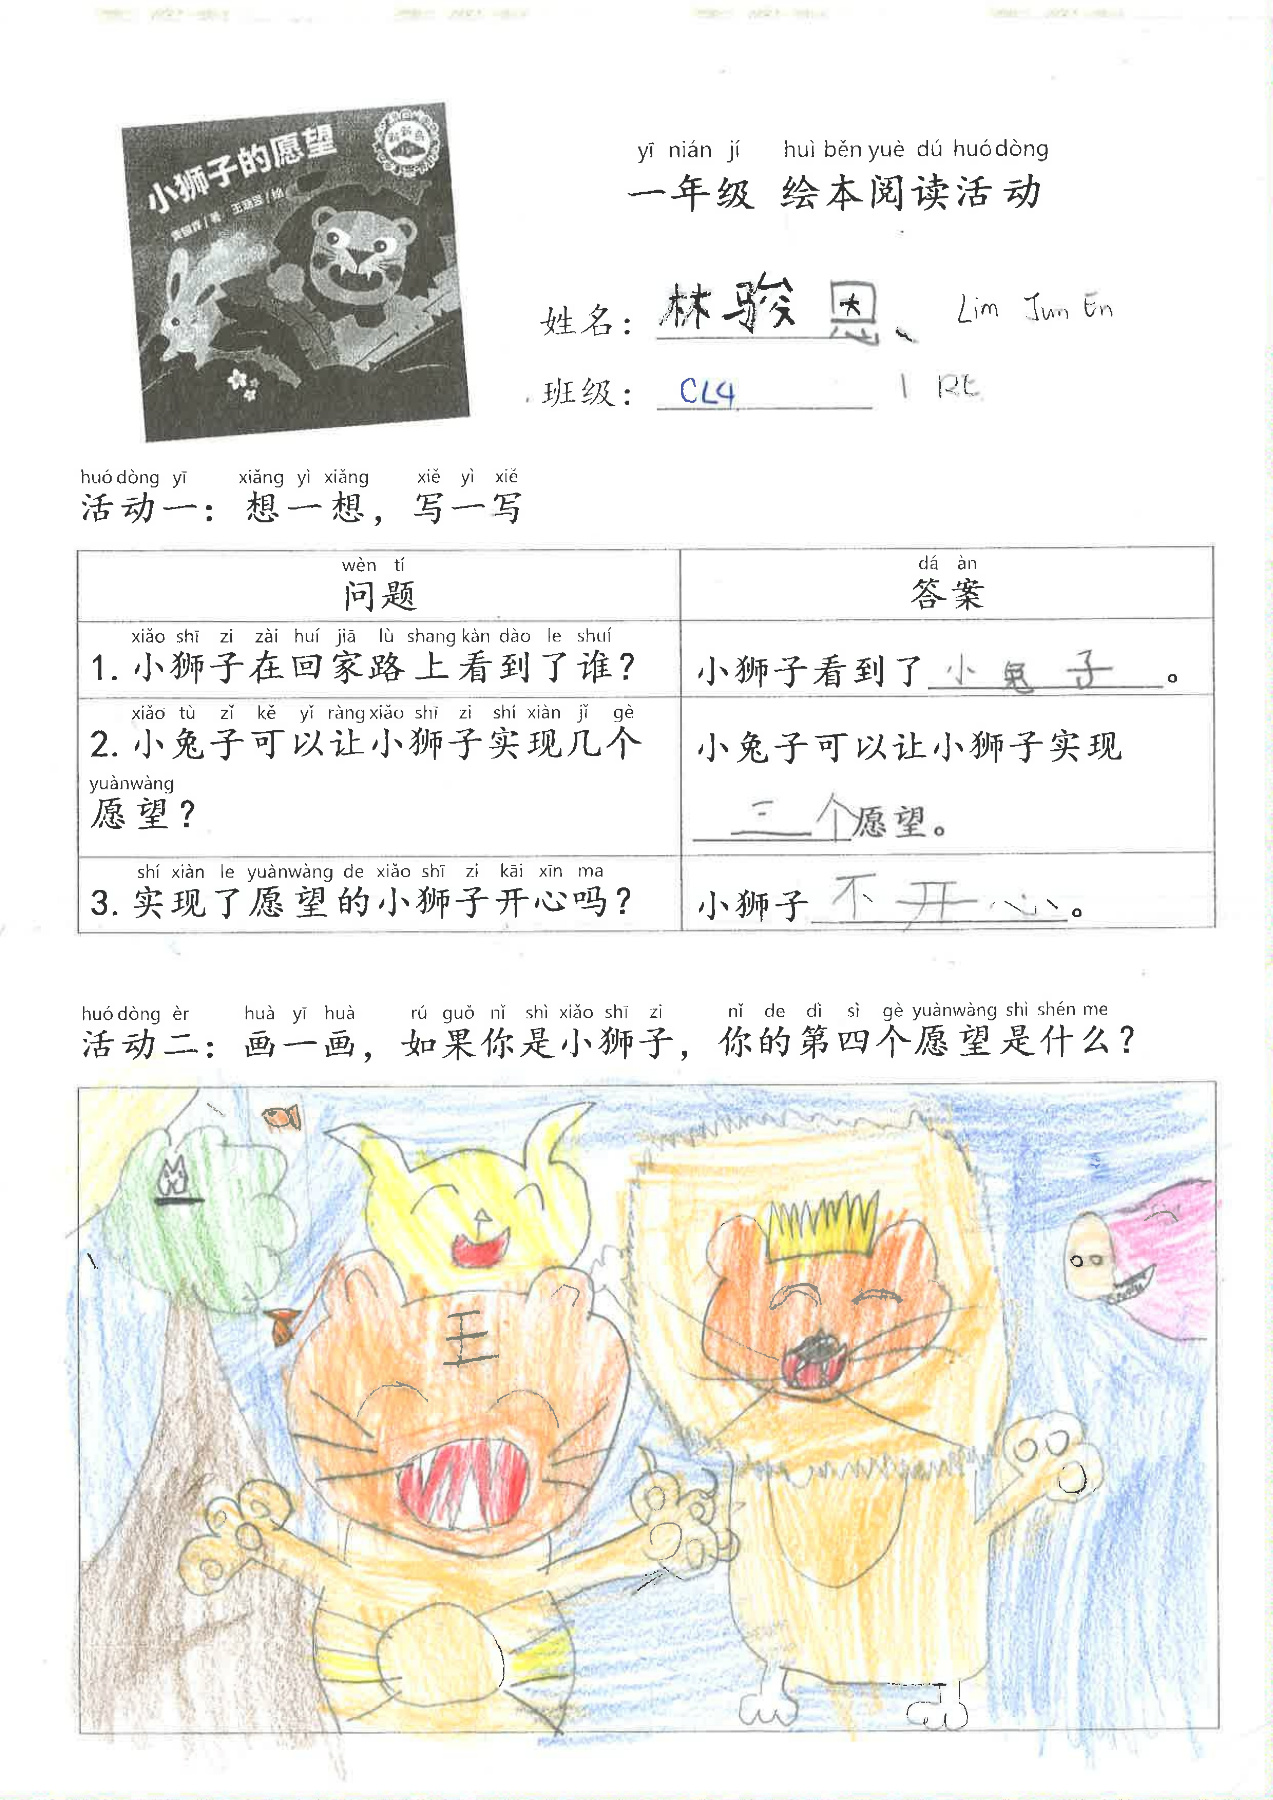 小狮子的愿望
yī nián jí huì běn yuè dú huó dòng
一年级 绘本阅读活动
姓名： 林骏恩 Lim Jun En
班级： CL4 1 RE
huó dòng yī xiǎng yì xiǎng xiě yì xiě
活动一：想一想，写一写
wèn tí
问题
dá àn
答案
xiǎo shī zi zài huí jiā lù shang kàn dào le shuí
1. 小狮子在回家路上看到了谁？
小狮子看到了小兔子。
xiǎo tù zǐ kě yǐ ràng xiǎo shī zi shí xiàn jǐ gè
2. 小兔子可以让小狮子实现几个
yuànwàng
愿望？
小兔子可以让小狮子实现
三个愿望。
shí xiàn le yuànwàng de xiǎo shī zi kāi xīn ma
3. 实现了愿望的小狮子开心吗？
小狮子不开心。
huó dòng èr huà yī huà rú guǒ nǐ shì xiǎo shī zi nǐ de dì sì gè yuànwàng shì shén me
活动二：画一画，如果你是小狮子，你的第四个愿望是什么？
王